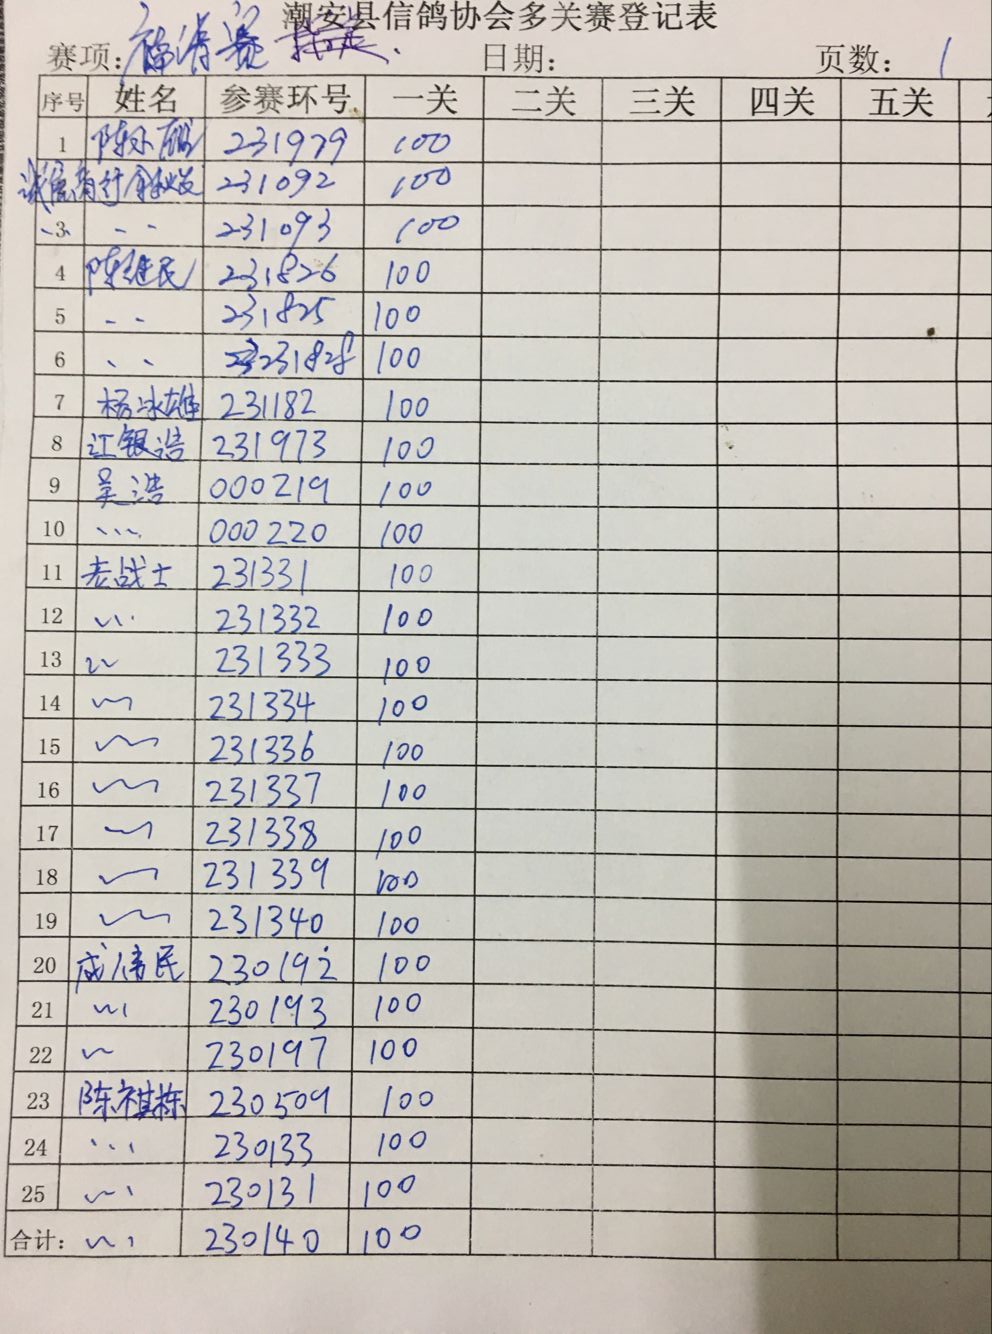 潮安县信鸽协会多关赛登记表
赛项: 福清赛 指定. 日期: 页数: 1
序号 姓名 参赛环号 一关 二关 三关 四关 五关
1 231979 100
诚信商行 231092 100
3 〃 231093 100
4 陈继民 231826 100
5 〃 231825 100
6 〃 231828 100
7 杨冰雄 231182 100
8 江银浩 231973 100
9 吴浩 000219 100
10 〃 000220 100
11 老战士 231331 100
12 〃 231332 100
13 〃 231333 100
14 〃 231334 100
15 〃 231336 100
16 〃 231337 100
17 〃 231338 100
18 〃 231339 100
19 〃 231340 100
20 成伟民 230192 100
21 〃 230193 100
22 〃 230197 100
23 陈祺栋 230509 100
24 〃 230133 100
25 〃 230131 100
合计: 〃 230140 100